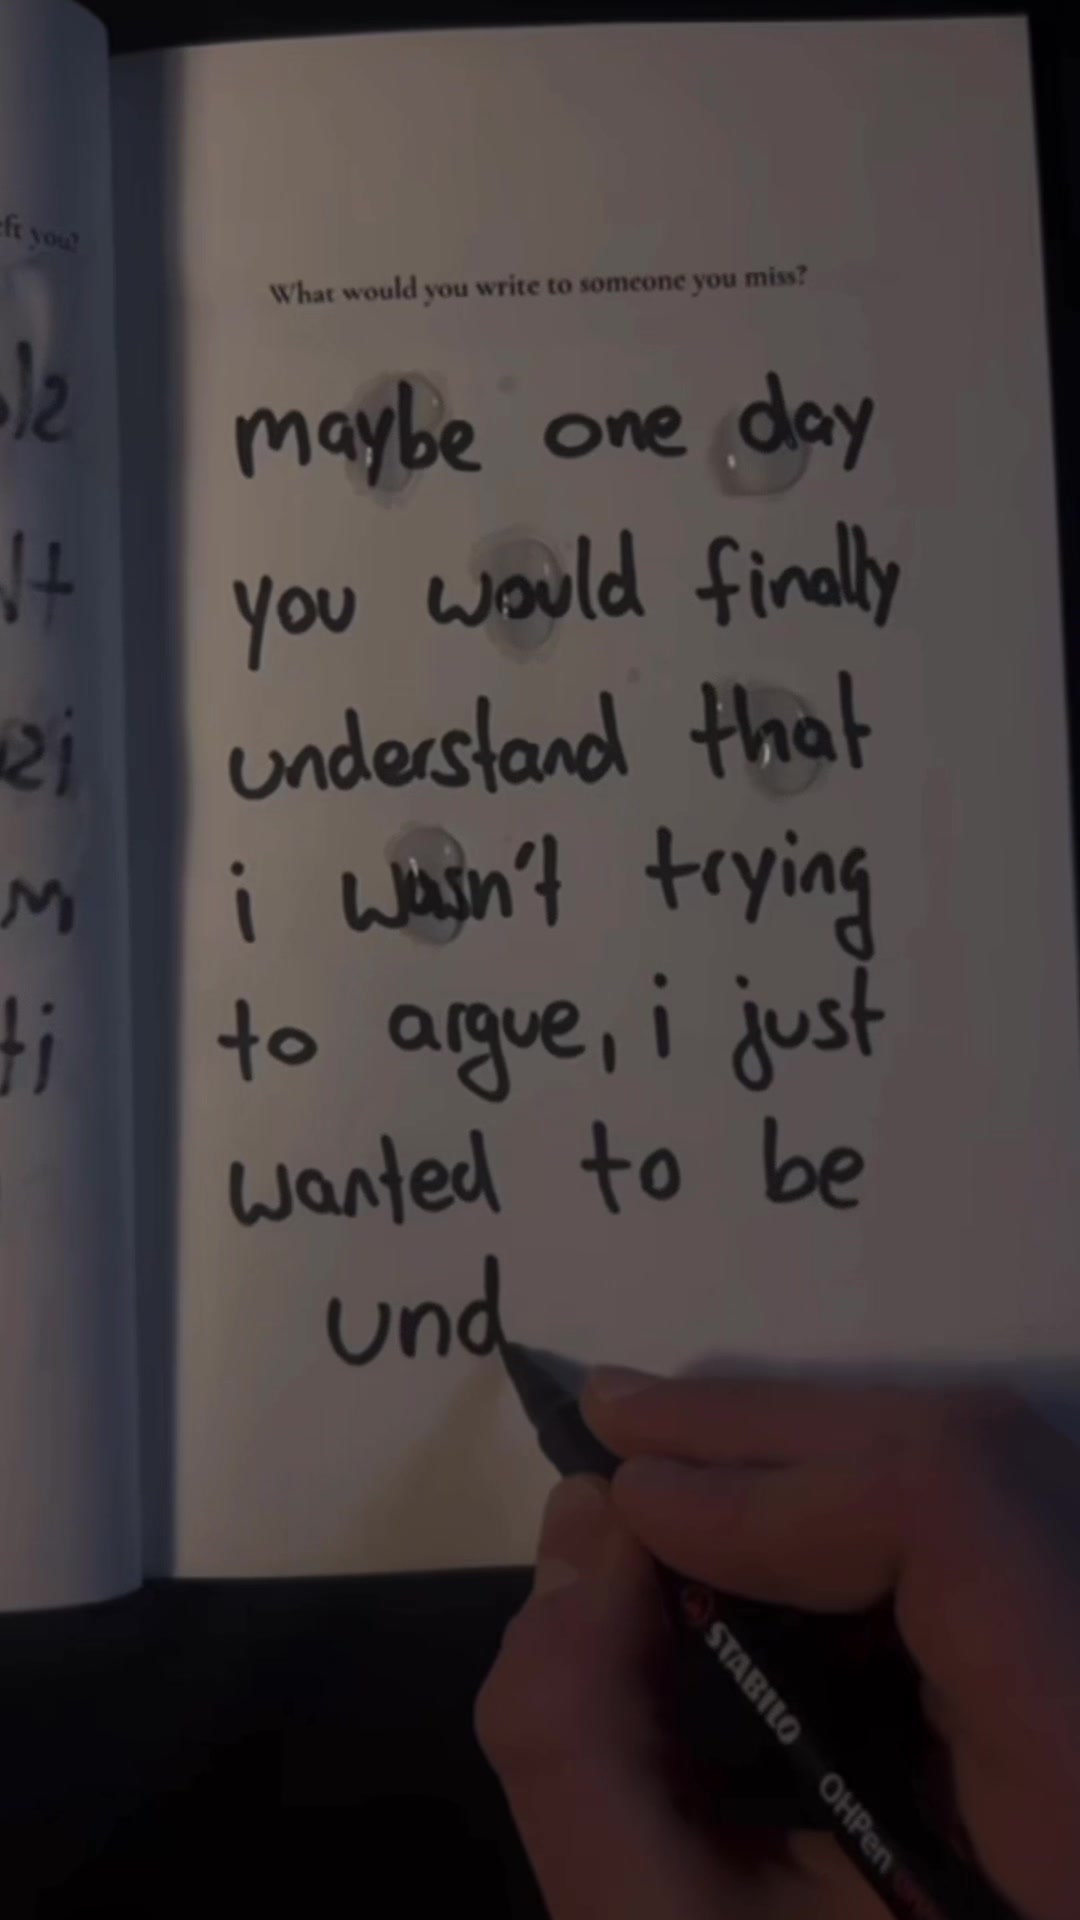 eft you?
What would you write to someone you miss?
maybe one day
you would finally
understand that
i wasn't trying
to argue, i just
wanted to be
und
STABILO OHPen